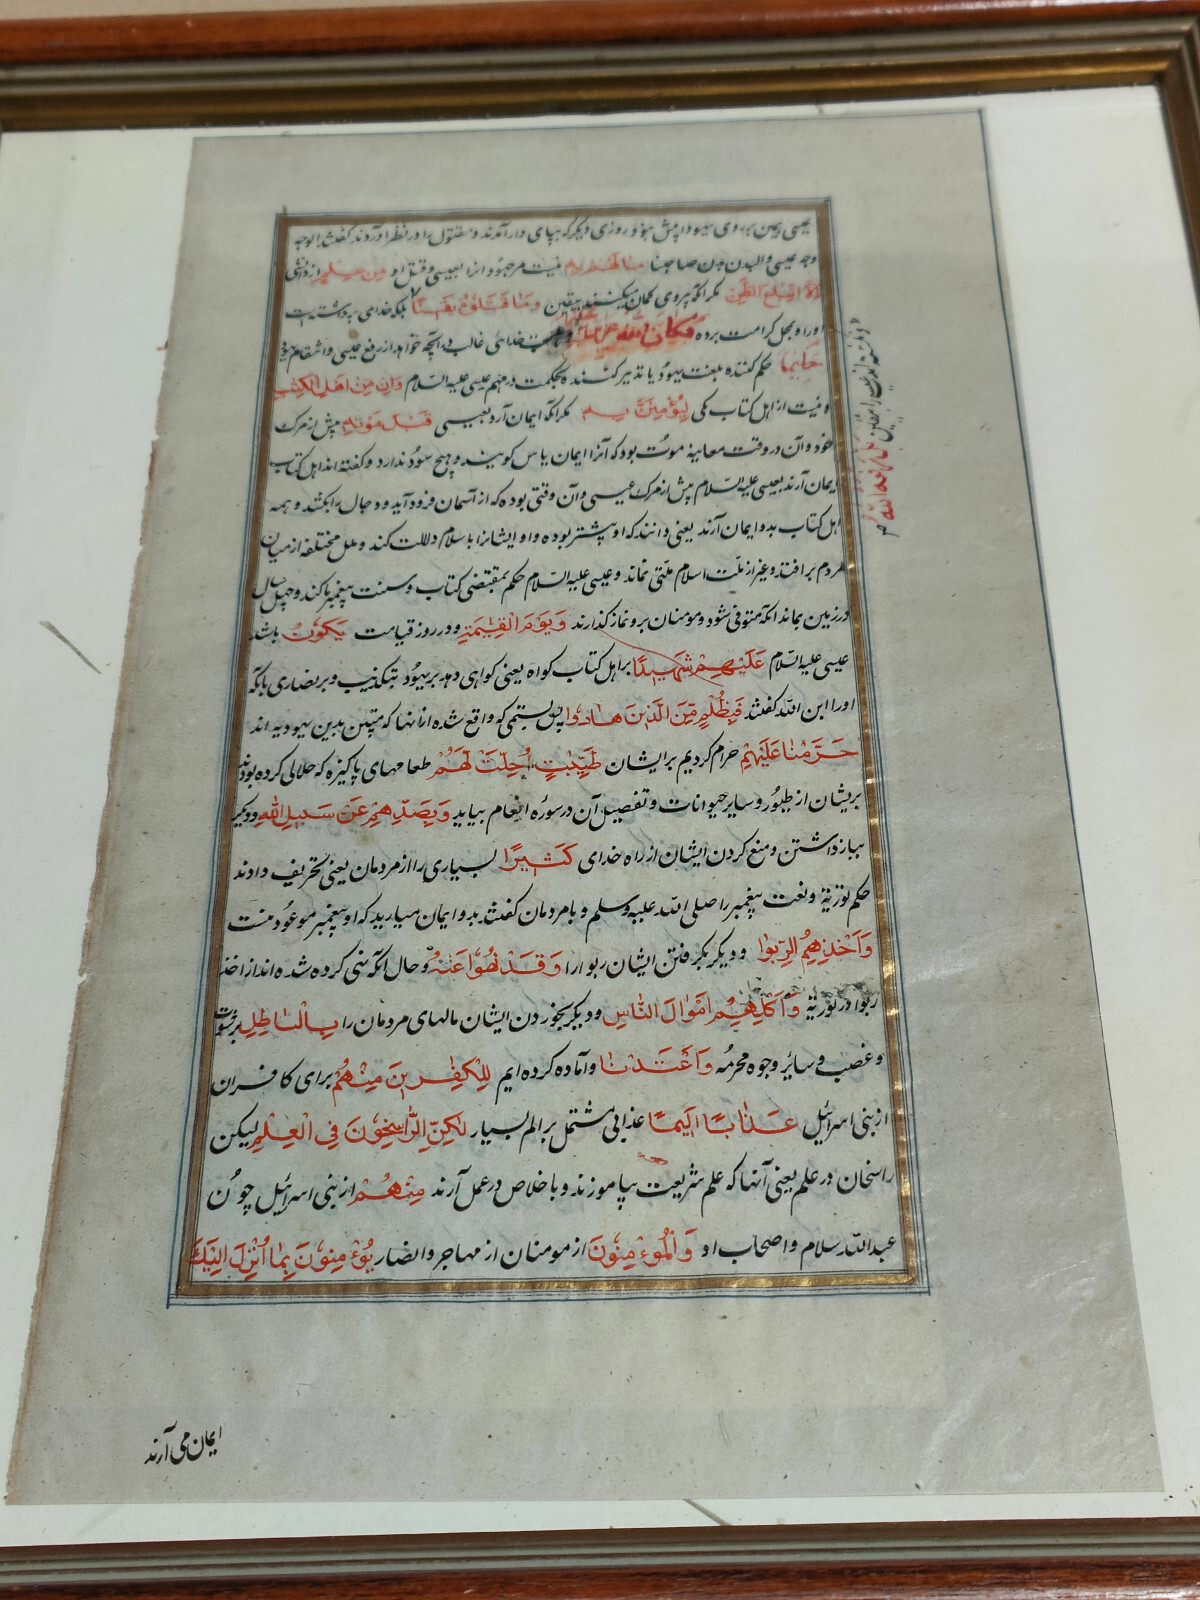 وجه عیسی والبدن بدن صاحبنا مَا لَهُمْ بِهِ نیست مر جهود را بعیسی و قتل او مِنْ عِلْمٍ از دانشی
اِلَّا اتِّبَاعَ الظَّنِّ مگر آنکه پیروی گمان میکنند بیقین وَمَا قَتَلُوْهُ یَقِیْنًا بلکه خدای برداشته است
او را و بمحل کرامت برده وَكَانَ اللّٰهُ خدای غالب در آنچه خواهد از رفع عیسی و انتقام
حَكِیْمًا حکم کننده بلعنت یهود یا تدبیر کننده بحکمت در مهم عیسی علیه السلام وَاِنْ مِنْ اَهْلِ الْكِتٰبِ
و نیست از اهل کتاب یکی لَیُؤْمِنَنَّ بِهِ مگر آنکه ایمان آرد بعیسی قَبْلَ مَوْتِهٖ پیش از مرگ
خود و آن در وقت معاینهٔ موت بود که آنرا ایمان یاس گویند و هیچ سود ندارد و گفته اند اهل کتاب
ایمان آرند بعیسی علیه السلام پیش از مرگ عیسی و آن وقتی بوده که از آسمان فرود آید و دجال را بکشد و همه
اهل کتاب بدو ایمان آرند یعنی دانند که او پیشتر بوده و او ایشانرا باسلام دلالت کند و ملل مختلفه از میان
مردم برافتد و غیر از ملت اسلام ملتی نماند و عیسی علیه السلام حکم بمقتضی کتاب و سنت پیغمبر ما کند و چهل سال
در زمین بماند آنکه متوفی شود و مومنان برو نماز گذارند وَیَوْمَ الْقِیٰمَةِ و در روز قیامت یَكُوْنُ باشد
عیسی علیه السلام عَلَیْهِمْ شَهِیْدًا بر اهل کتاب گواه یعنی گواهی دهد بر یهود بتکذیب و بر نصاری بآنکه
او را ابن الله گفتند فَبِظُلْمٍ مِّنَ الَّذِیْنَ هَادُوْا پس بستمی که واقع شده از آنها که متدین بدین یهودیه اند
حَرَّمْنَا عَلَیْهِمْ حرام کردیم بر ایشان طَیِّبٰتٍ اُحِلَّتْ لَهُمْ طعامهای پاکیزه که حلال کرده بودند
بریشان از طیور و سایر حیوانات و تفصیل آن در سوره انعام بیاید وَبِصَدِّهِمْ عَنْ سَبِیْلِ اللّٰهِ و دیگر
ببازداشتن و منع کردن ایشان از راه خدای كَثِیْرًا بسیاری را از مردمان یعنی تحریف دادند
حکم توریة و نعت پیغمبر را صلی الله علیه وسلم و با مردمان گفتند بدو ایمان میارید که او پیغمبر موعود نیست
وَاَخْذِهِمُ الرِّبٰوا و دیگر بگرفتن ایشان ربوا را وَقَدْ نُهُوْا عَنْهُ و حال آنکه نهی کرده شده اند از اخذ
ربوا در توریة وَاَكْلِهِمْ اَمْوَالَ النَّاسِ و دیگر بخوردن ایشان مالهای مردمان را بِالْبَاطِلِ برشوت
و غصب و سائر وجوه محرمه وَاَعْتَدْنَا و آماده کرده ایم لِلْكٰفِرِیْنَ مِنْهُمْ برای کافران
از بنی اسرائیل عَذَابًا اَلِیْمًا عذابی مشتمل بر الم بسیار لٰكِنِ الرَّاسِخُوْنَ فِی الْعِلْمِ لیکن
راسخان در علم یعنی آنها که علم شریعت بیاموزند و با خلاص در عمل آرند مِنْهُمْ از بنی اسرائیل چون
عبدالله سلام و اصحاب او وَالْمُؤْمِنُوْنَ از مومنان از مهاجر و انصار یُؤْمِنُوْنَ بِمَا اُنْزِلَ اِلَیْكَ
ایمان می آرند